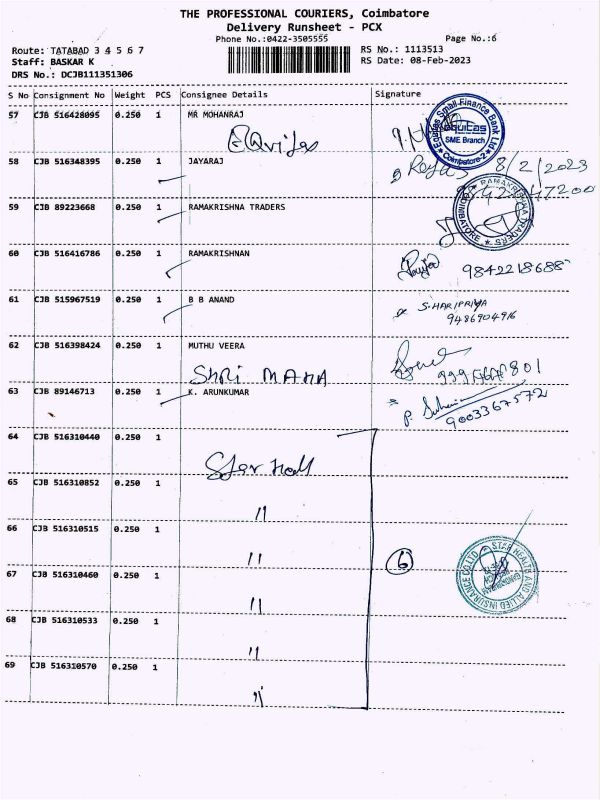 THE PROFESSIONAL COURIERS, Coimbatore
Delivery Runsheet - PCX
Phone No.:0422-3505555 Page No.:6
Route: TATABAD 3 4 5 6 7 RS No.: 1113513
Staff: BASKAR K RS Date: 08-Feb-2023
DRS No.: DCJB111351306
S No Consignment No Weight PCS Consignee Details Signature
57 CJB 516428095 0.250 1 MR MOHANRAJ
Equitas
Equitas Small Finance Bank Ltd
equitas
SME Branch
Coimbatore-2
58 CJB 516348395 0.250 1 JAYARAJ
8/2/2023
59 CJB 89223668 0.250 1 RAMAKRISHNA TRADERS
RAMAKRISHNA TRADERS
COIMBATORE
60 CJB 516416786 0.250 1 RAMAKRISHNAN
9842218688
61 CJB 515967519 0.250 1 B B ANAND
S.HARIPRIYA
9486904916
62 CJB 516398424 0.250 1 MUTHU VEERA
SHRI MAHA
63 CJB 89146713 0.250 1 K. ARUNKUMAR
9003367572
64 CJB 516310440 0.250 1
Star Health
65 CJB 516310852 0.250 1
"
66 CJB 516310515 0.250 1
"
6
67 CJB 516310460 0.250 1
"
STAR HEALTH AND ALLIED INSURANCE CO LTD
68 CJB 516310533 0.250 1
"
69 CJB 516310570 0.250 1
"